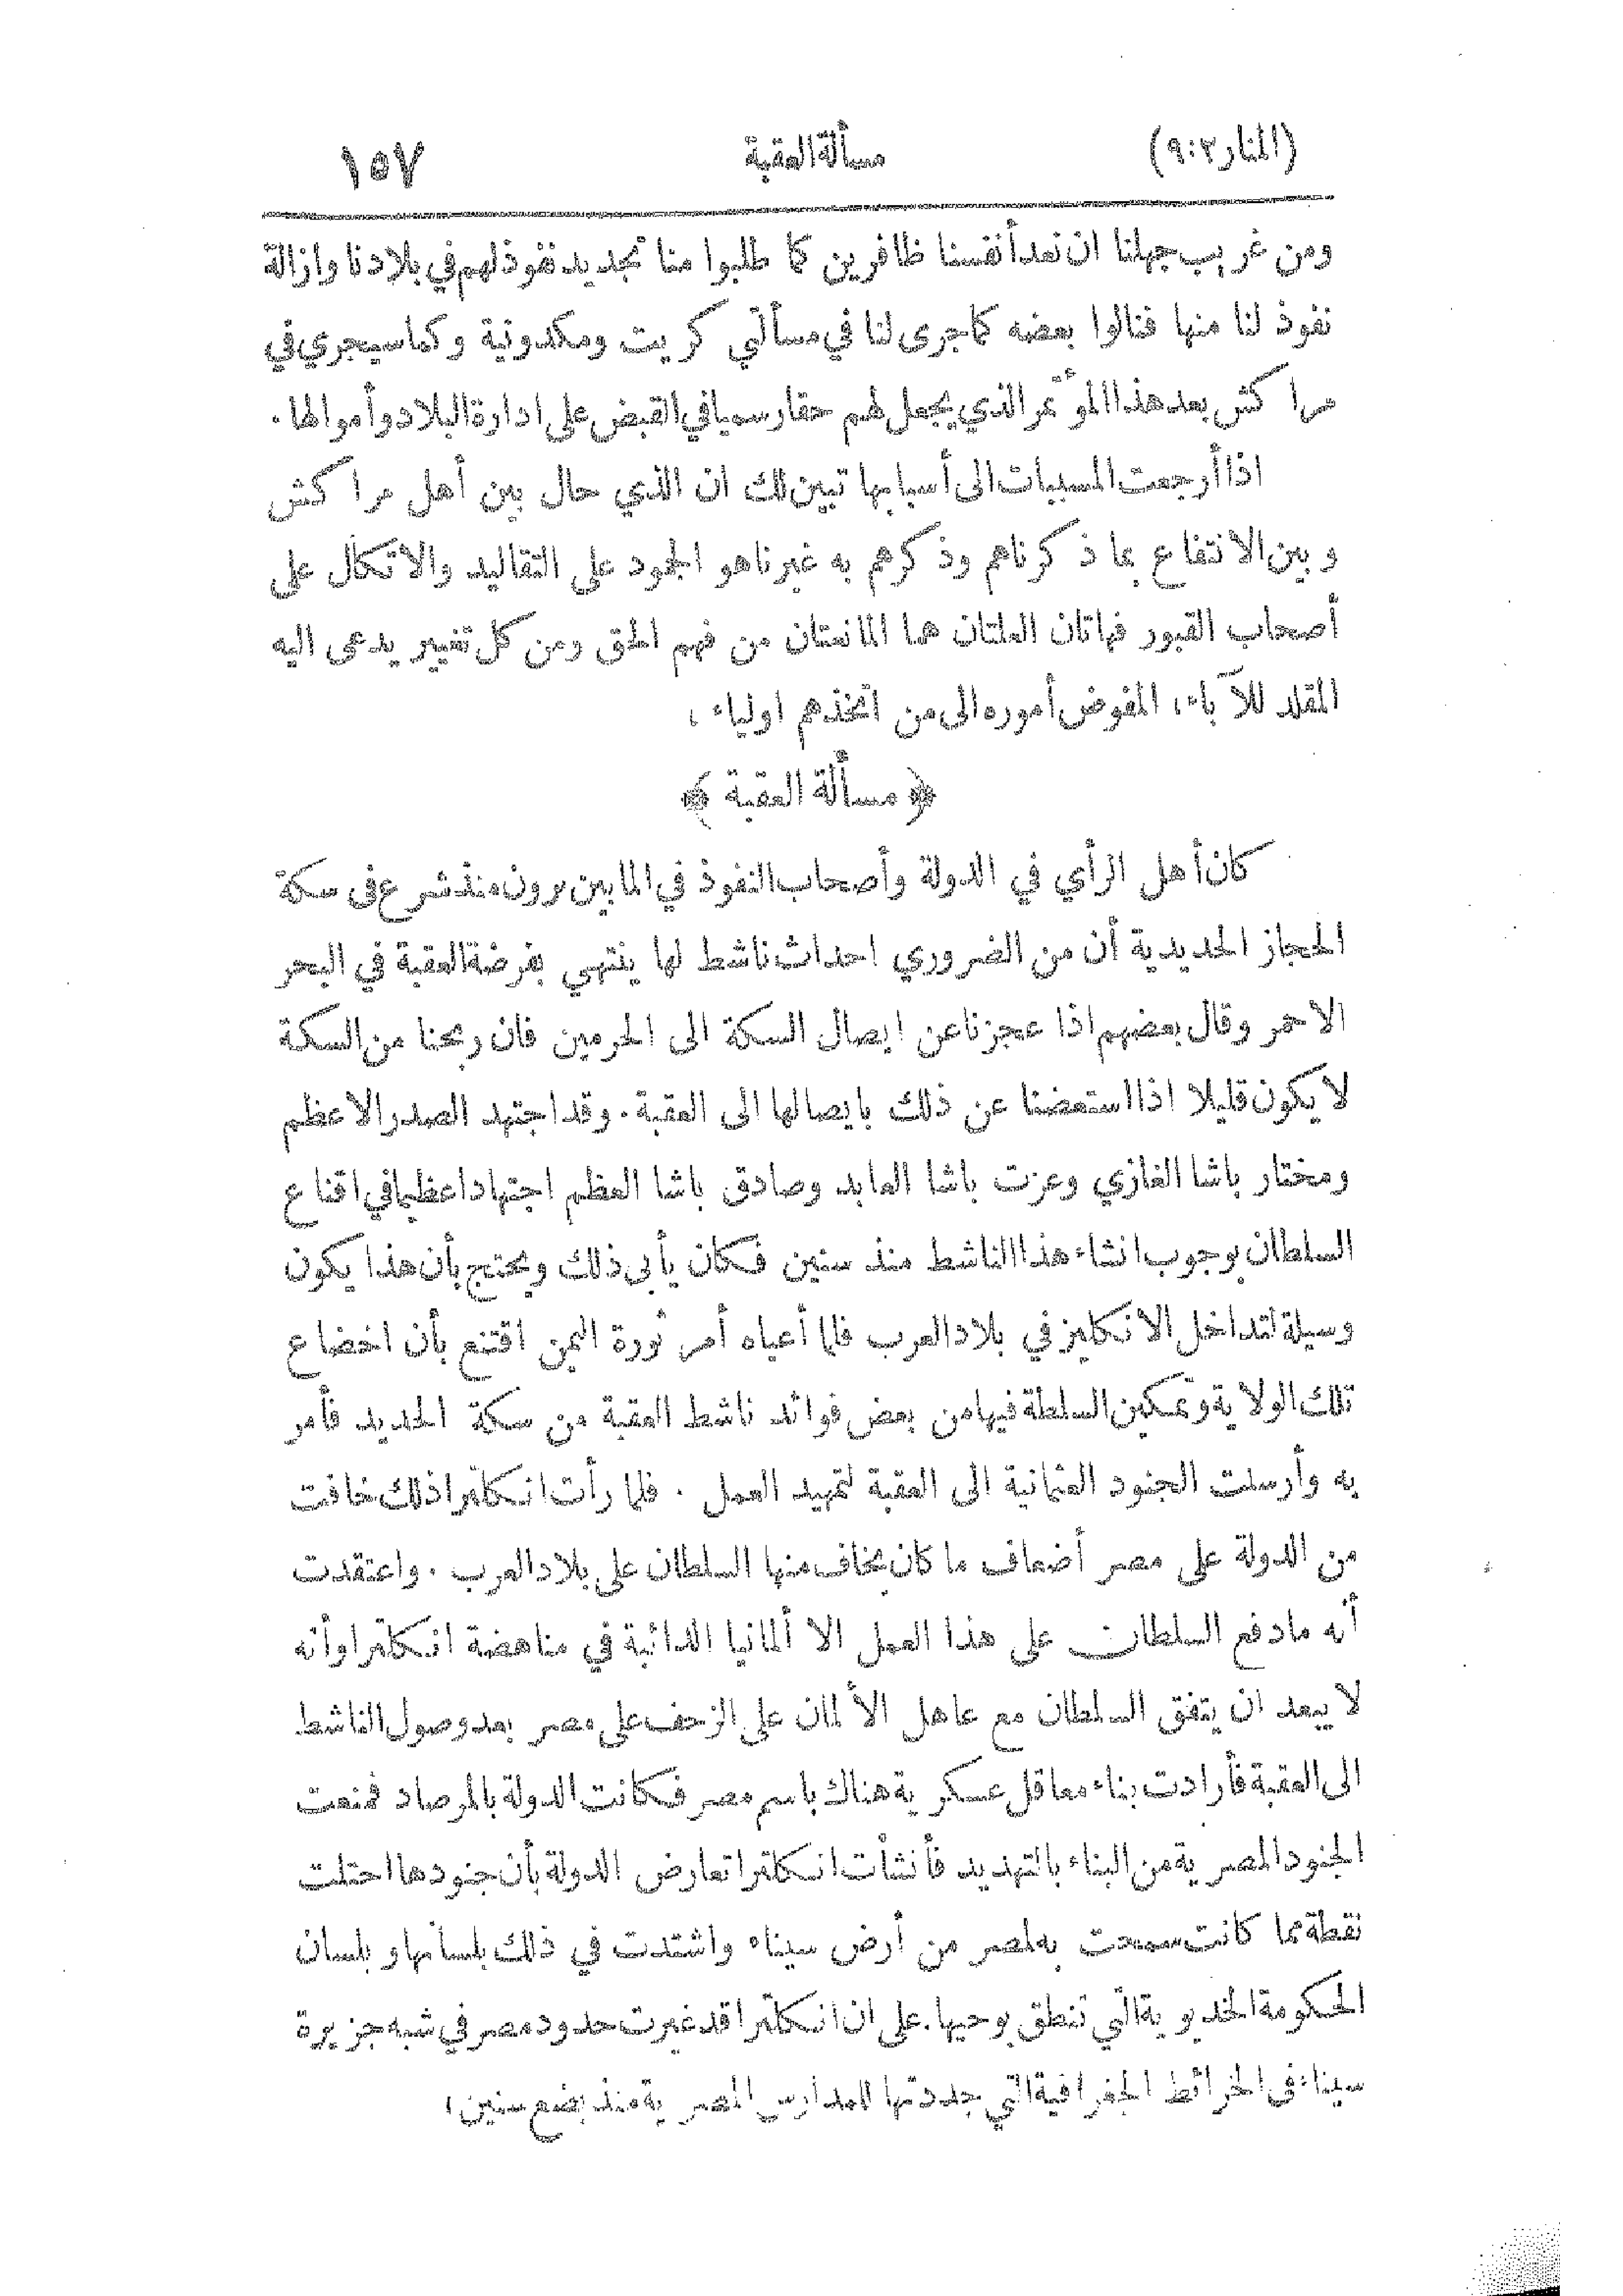 (المنار ٩:٢) مسألة العقبة ١٥٧
ومن غريب جهلنا ان نعد أنفسنا ظافرين كما طلبوا منا تجديد نفوذ لهم في بلادنا وازالة
نفوذ لنا منها فنالوا بعضه كما جرى لنا في مسألتي كريت ومكدونية وكما سيجري في
مراكش بعد هذا المؤتمر الذي يجعل لهم حقا رسميا في القبض على ادارة البلاد وأموالها .
اذا أرجعت المسببات الى أسبابها تبين لك ان الذي حال بين أهل مراكش
وبين الانتفاع بما ذكرناهم وذكرهم به غيرنا هو الجمود على التقاليد والاتكال على
أصحاب القبور فهاتان العلتان هما المانعتان من فهم الحق ومن كل تغيير يدعى اليه
المقلد للآباء ، المفوض أموره الى من اتخذهم اولياء ،
﴿ مسألة العقبة ﴾
كان أهل الرأي في الدولة وأصحاب النفوذ في المابين يرون منذ شرع فى سكة
الحجاز الحديدية أن من الضروري احداث ناشط لها ينتهي بفرضة العقبة في البحر
الاحمر وقال بعضهم اذا عجزنا عن ايصال السكة الى الحرمين فان ربحنا من السكة
لا يكون قليلا اذا استعضنا عن ذلك بايصالها الى العقبة . وقد اجتهد الصدر الاعظم
ومختار باشا الغازي وعزت باشا العابد وصادق باشا العظم اجتهادا عظيما في اقناع
السلطان بوجوب انشاء هذا الناشط منذ سنين فكان يأبى ذلك ويحتج بأن هذا يكون
وسيلة لتداخل الانكليز في بلاد العرب فلما أعياه أمر ثورة اليمن اقتنع بأن اخضاع
تلك الولاية وتمكين السلطة فيها من بعض فوائد ناشط العقبة من سكة الحديد فأمر
به وأرسلت الجنود العثمانية الى العقبة لتمهيد العمل . فلما رأت انكلترا ذلك خافت
من الدولة على مصر أضعاف ما كان يخاف منها السلطان على بلاد العرب . واعتقدت
أنه مادفع السلطان على هذا العمل الا ألمانيا الدائبة في مناهضة انكلترا وأنه
لا يبعد ان يتفق السلطان مع عاهل الألمان على الزحف على مصر بعد وصول الناشط
الى العقبة فأرادت بناء معاقل عسكرية هناك باسم مصر فكانت الدولة بالمرصاد فمنعت
الجنود المصرية من البناء بالتهديد فأنشأت انكلترا تعارض الدولة بأن جنودها احتلت
نقطة مما كانت سمحت به لمصر من أرض سيناء واشتدت في ذلك بلسانها وبلسان
الحكومة الخديوية التي تنطق بوحيها . على ان انكلترا قد غيرت حدود مصر في شبه جزيرة
سيناء فى الخرائط الجغرافية التي جددتها للمدارس المصرية منذ بضع سنين ،